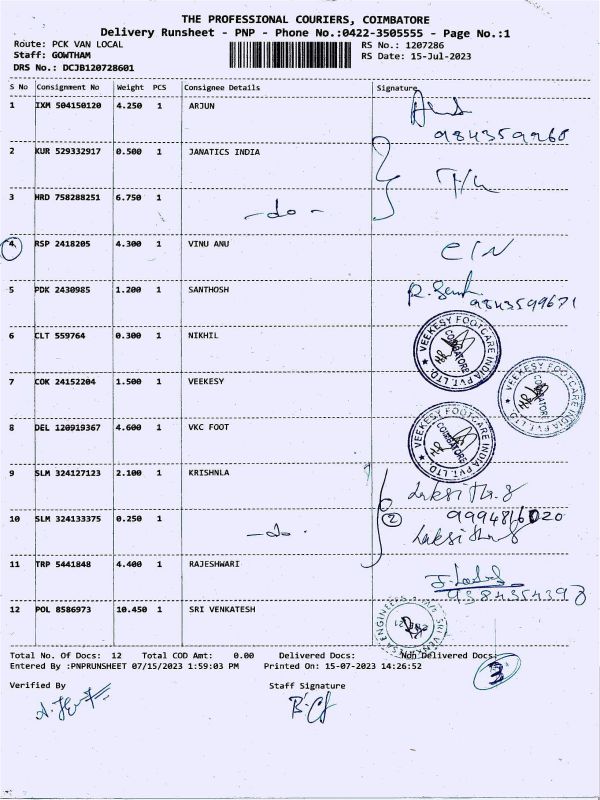 THE PROFESSIONAL COURIERS, COIMBATORE
Delivery Runsheet - PNP - Phone No.:0422-3505555 - Page No.:1
Route: PCK VAN LOCAL RS No.: 1207286
Staff: GOWTHAM RS Date: 15-Jul-2023
DRS No.: DCJB120728601
S No Consignment No Weight PCS Consignee Details Signature
1 IXM 504150120 4.250 1 ARJUN
2 KUR 529332917 0.500 1 JANATICS INDIA
3 HRD 758288251 6.750 1 -do-
4 RSP 2418205 4.300 1 VINU ANU
5 PDK 2430985 1.200 1 SANTHOSH 9843599671
6 CLT 559764 0.300 1 NIKHIL VEEKESY FOOTCARE INDIA PVT. LTD. COIMBATORE
7 COK 24152204 1.500 1 VEEKESY VEEKESY FOOTCARE INDIA PVT. LTD. COIMBATORE
8 DEL 120919367 4.600 1 VKC FOOT VEEKESY FOOTCARE INDIA PVT. LTD. COIMBATORE
9 SLM 324127123 2.100 1 KRISHNLA
10 SLM 324133375 0.250 1 -do- 2
11 TRP 5441848 4.400 1 RAJESHWARI
12 POL 8586973 10.450 1 SRI VENKATESH
Total No. Of Docs: 12 Total COD Amt: 0.00 Delivered Docs: Non Delivered Docs: 3
Entered By :PNPRUNSHEET 07/15/2023 1:59:03 PM Printed On: 15-07-2023 14:26:52
Verified By Staff Signature